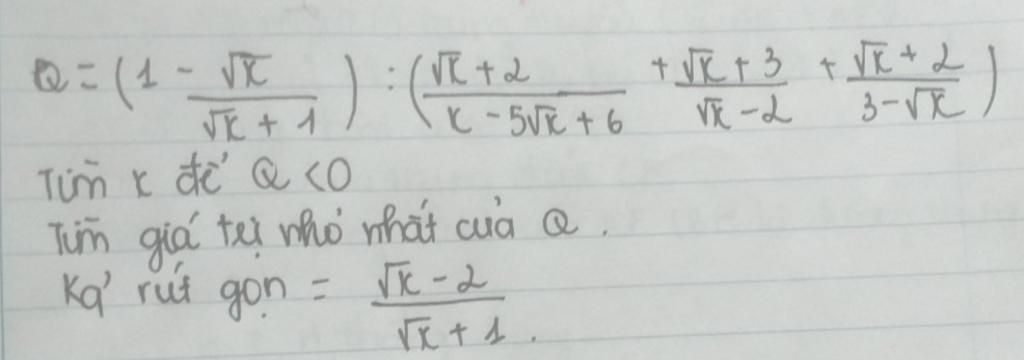 Q = (1 - √x/(√x + 1)) : ((√x + 2)/(x - 5√x + 6) + (√x + 3)/(√x - 2) + (√x + 2)/(3 - √x))
Tìm x để Q < 0
Tìm giá trị nhỏ nhất của Q.
Kq' rút gọn = (√x - 2)/(√x + 1).